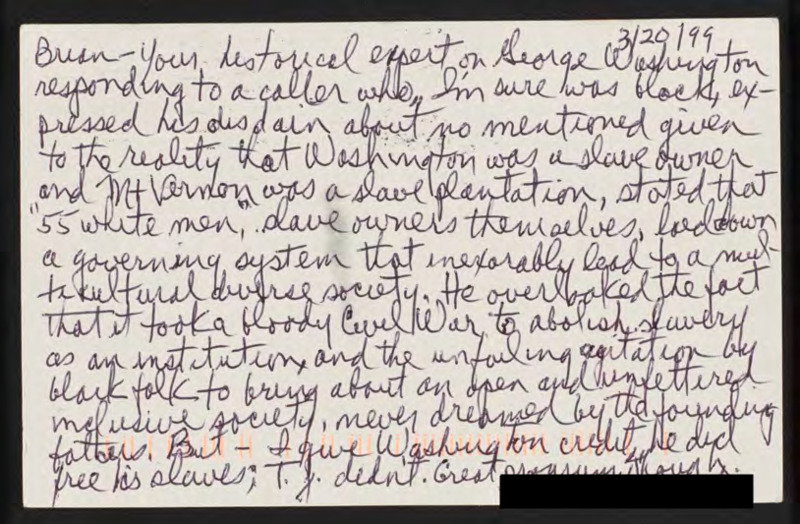 3/20/99
Brian - Your historical expert on George Washington
responding to a caller who, I'm sure was black, ex-
pressed his disdain about no mentioned given
to the reality that Washington was a slave owner
and Mt Vernon was a slave plantation, stated that
"55 white men," slave owners themselves, laid down
a governing system that inexorably lead to a mul-
ticultural diverse society. He overlooked the fact
that it took a bloody Civil War to abolish slavery
as an institution, and the unfailing agitation by
black folk to bring about an open and unfettered
inclusive society, never dreamed by the founding
fathers. But - I give Washington credit, he did
free his slaves; T. J. didn't. Great program though.